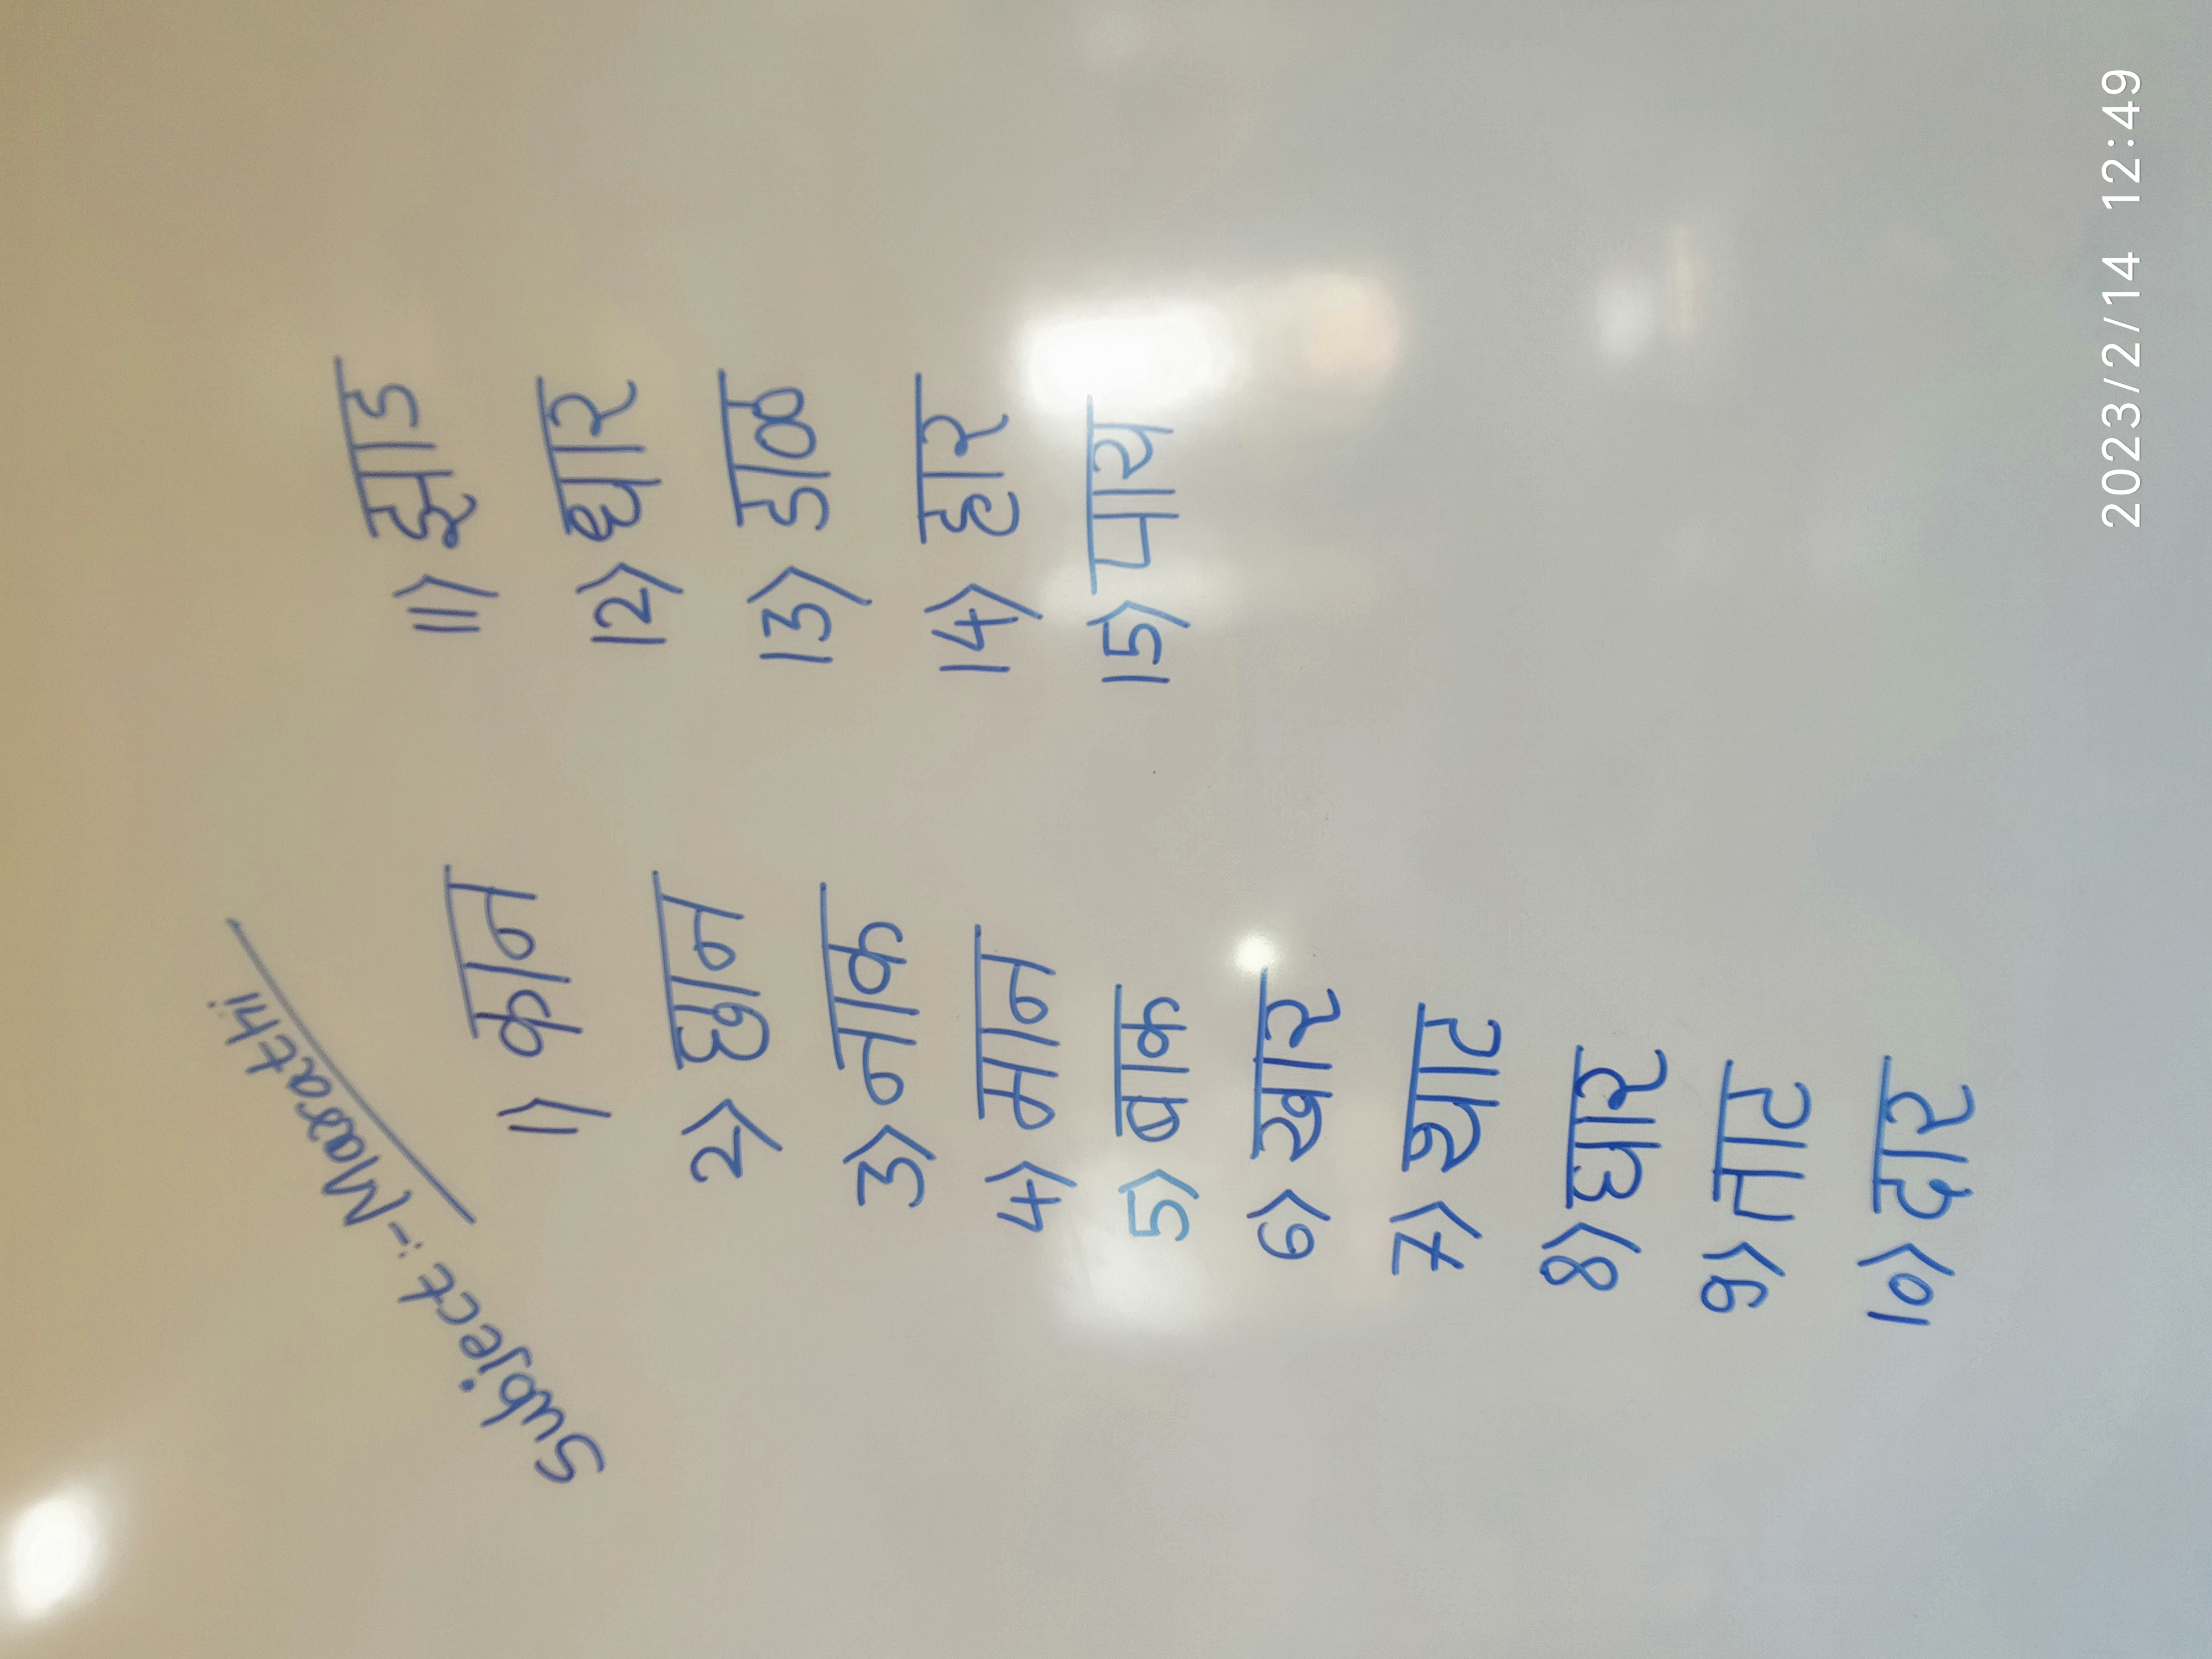 Subject :- Marathi
1) कान
2) छान
3) नाक
4) मान
5) बाक
6) खार
7) थाट
8) घार
9) ताट
10) दार
11) झाड
12) धार
13) डाळ
14) हार
15) पाय
2023/2/14 12:49